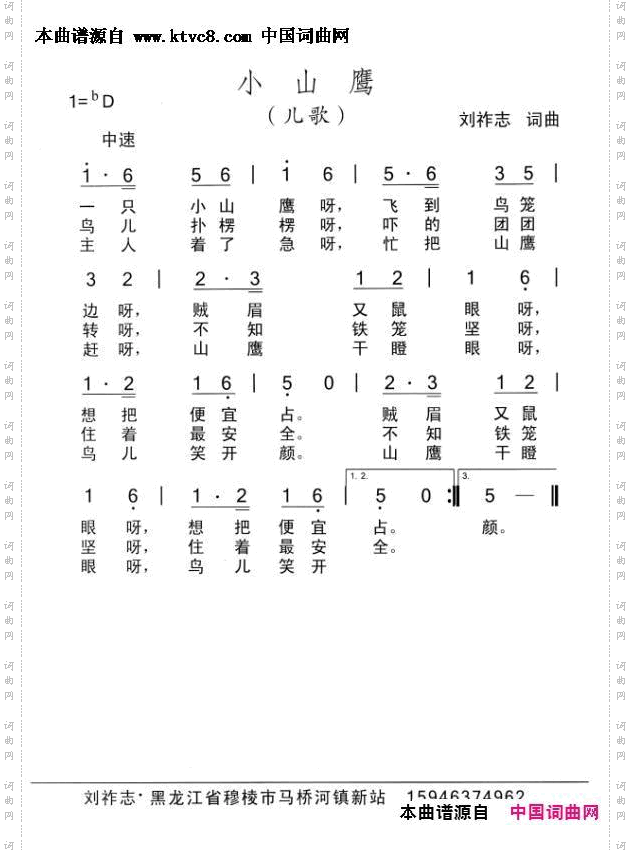 本曲谱源自 www.ktvc8.com 中国词曲网
小 山 鹰
1=♭D
（儿歌）
刘祚志 词曲
中速
1 · 6 5 6 | 1 6 | 5 · 6 3 5 |
一 只 小 山 鹰 呀， 飞 到 鸟 笼
鸟 儿 扑 楞 楞 呀， 吓 的 团 团
主 人 着 了 急 呀， 忙 把 山 鹰
3 2 | 2 · 3 1 2 | 1 6 |
边 呀， 贼 眉 又 鼠 眼 呀，
转 呀， 不 知 铁 笼 坚 呀，
赶 呀， 山 鹰 干 瞪 眼 呀，
1 · 2 1 6 | 5 0 | 2 · 3 1 2 |
想 把 便 宜 占。 贼 眉 又 鼠
住 着 最 安 全。 不 知 铁 笼
鸟 儿 笑 开 颜。 山 鹰 干 瞪
1 6 | 1 · 2 1 6 | 1. 2. 5 0 :‖ 3. 5 — ‖
眼 呀， 想 把 便 宜 占。 颜。
坚 呀， 住 着 最 安 全。
眼 呀， 鸟 儿 笑 开
刘祚志·黑龙江省穆棱市马桥河镇新站 15946374962
本曲谱源自 中国词曲网